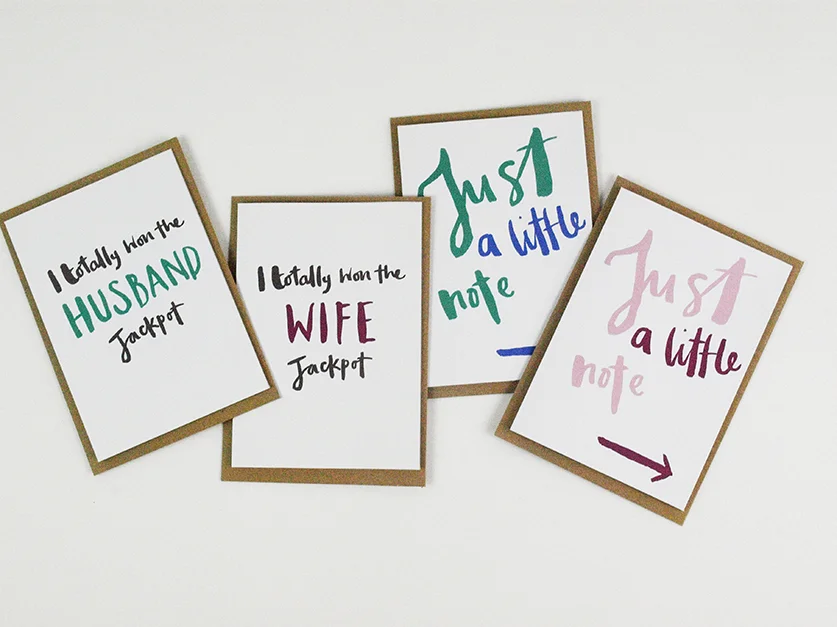 I totally won the
HUSBAND
Jackpot
I totally won the
WIFE
Jackpot
Just
a little
note
Just
a little
note